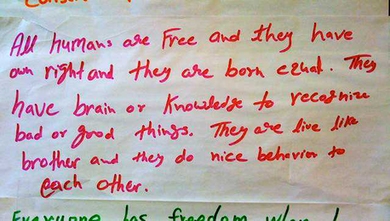 All humans are Free and they have
own right and they are born equal. They
have brain or Knowledge to recognize
bad or good things. They are live like
brother and they do nice behavior to
each other.
Everyone has freedom